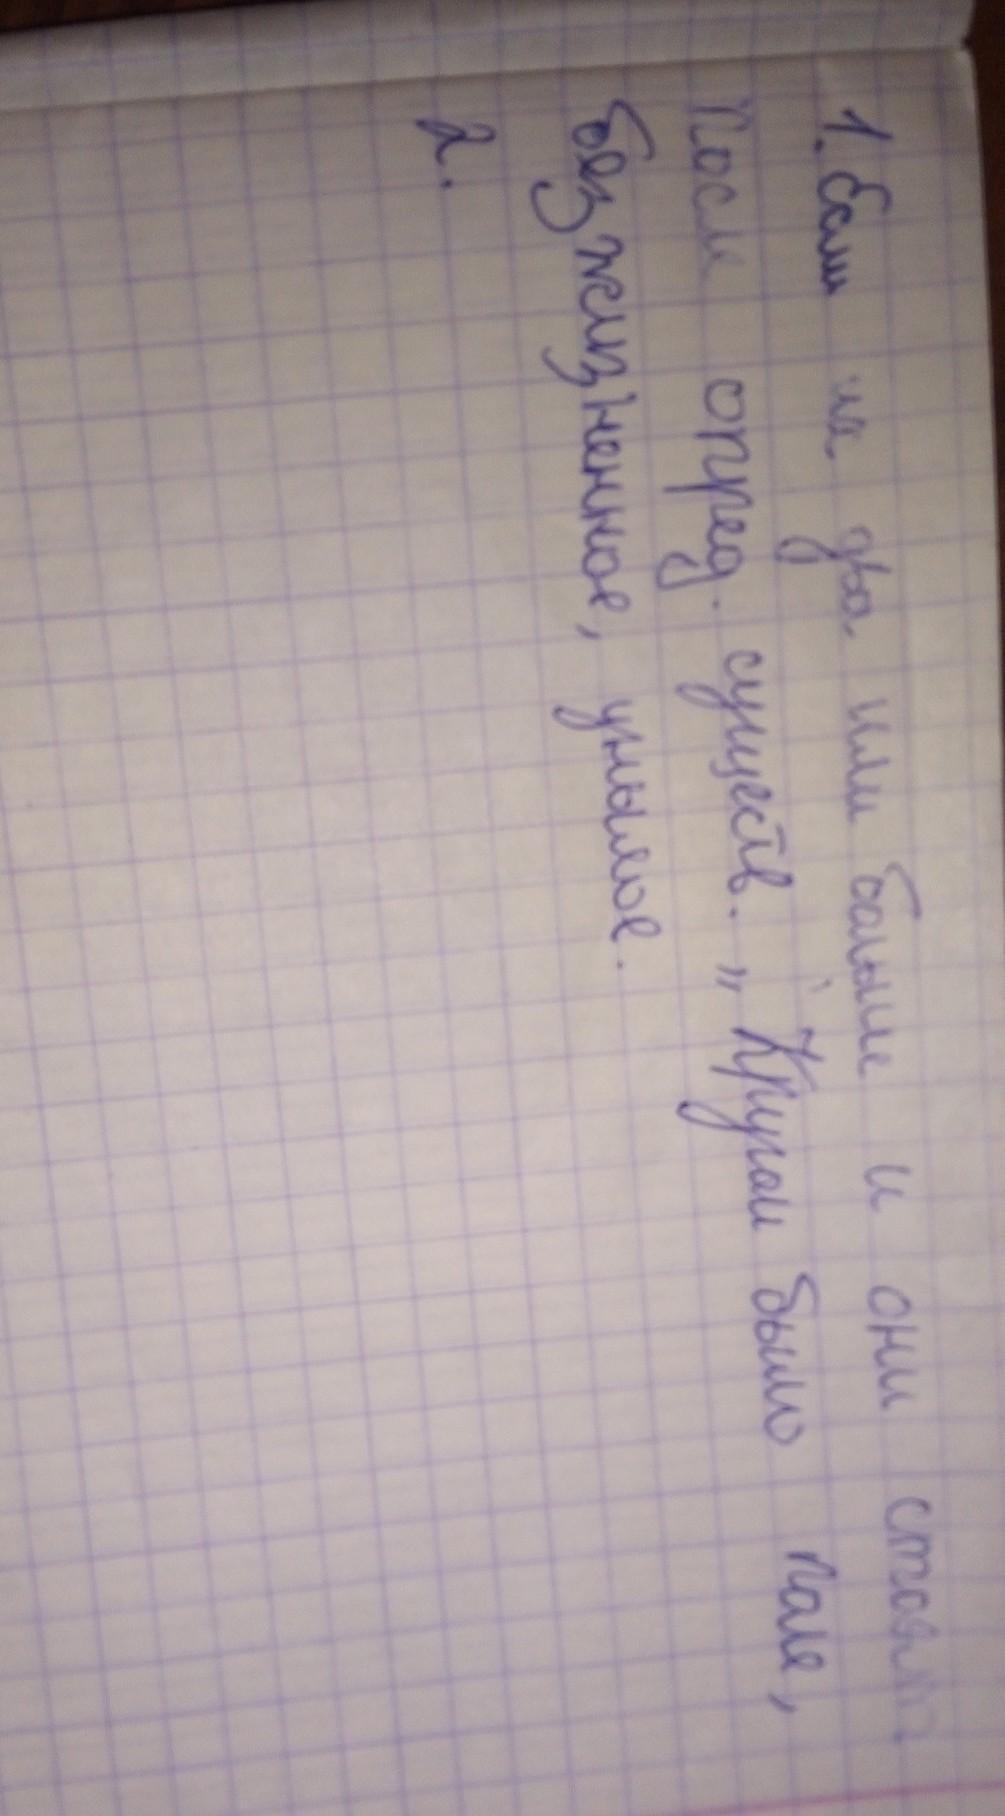 1. Если их два или больше и они стоят
после опред. существ. „Кругом было поле,
безжизненное, унылое.
2.